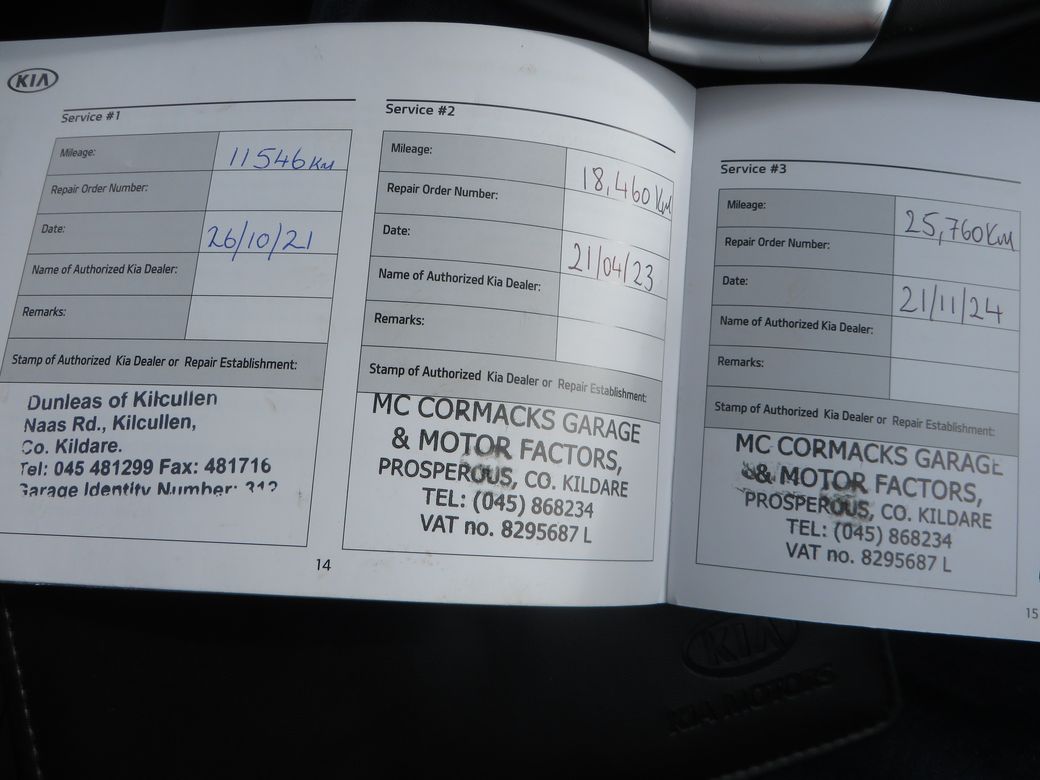 KIA
Service #1
Mileage: 11546 Km
Repair Order Number:
Date: 26/10/21
Name of Authorized Kia Dealer:
Remarks:
Stamp of Authorized Kia Dealer or Repair Establishment:
Dunleas of Kilcullen
Naas Rd., Kilcullen,
Co. Kildare.
Tel: 045 481299 Fax: 481716
Garage Identity Number: 312
14
Service #2
Mileage: 18,460 Km
Repair Order Number:
Date: 21/04/23
Name of Authorized Kia Dealer:
Remarks:
Stamp of Authorized Kia Dealer or Repair Establishment:
MC CORMACKS GARAGE
& MOTOR FACTORS,
PROSPEROUS, CO. KILDARE
TEL: (045) 868234
VAT no. 8295687 L
Service #3
Mileage: 25,760 Km
Repair Order Number:
Date: 21/11/24
Name of Authorized Kia Dealer:
Remarks:
Stamp of Authorized Kia Dealer or Repair Establishment:
MC CORMACKS GARAGE
& MOTOR FACTORS,
PROSPEROUS, CO. KILDARE
TEL: (045) 868234
VAT no. 8295687 L
15
KIA
KIA MOTORS